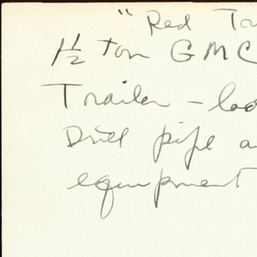 " Red
1½ ton GMC
Trailer –
Drill pipe
equipment